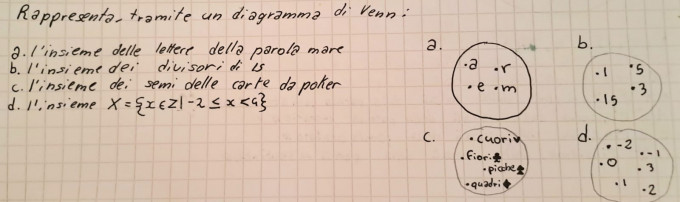 Rappresenta, tramite un diagramma di Venn:
a. l'insieme delle lettere della parola mare
b. l'insieme dei divisori di 15
c. l'insieme dei semi delle carte da poker
d. l'insieme X = {x ∈ Z | -2 ≤ x < 4}
a.
·a ·r
·e ·m
b.
·1 ·5
·3
·15
c.
·cuori ♥
·fiori ♣
·picche ♠
·quadri ♦
d.
·-2
·-1
·0
·3
·1
·2